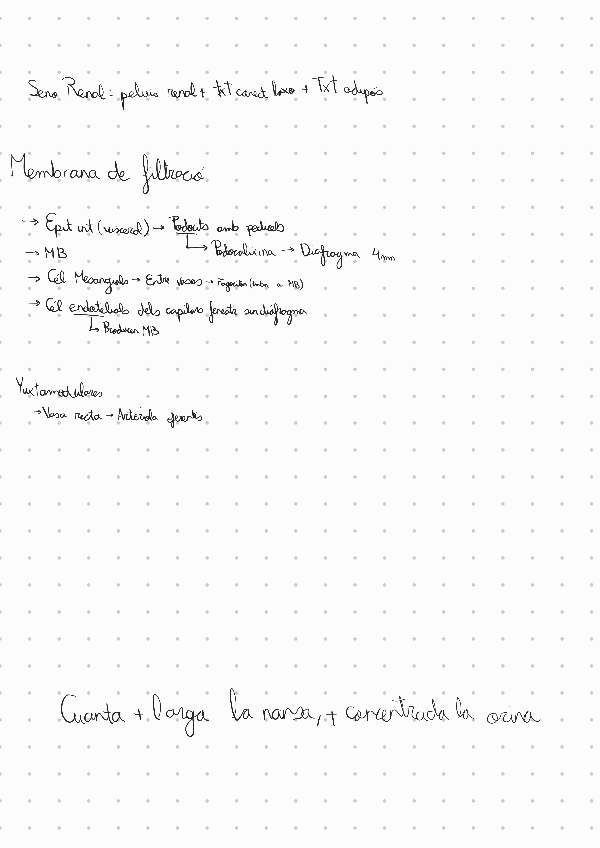 Seno Renal: pelvis renal + txt conect laxo + Txt adipós
Membrana de filtració
→ Epit int (visceral) → Podocits amb pedicels
↳ Podocalixina → Diafragma 4nm
→ MB
→ Cél Mesangials → Entre vasos → Fagociten (tmbn a MB)
→ Cél endotelials dels capilars fenestr sin diafragma
↳ Produeixen MB
Yuxtamedulares
→ Vasa recta → Arteriola eferents
Cuanta + larga la nansa, + concentrada la orina